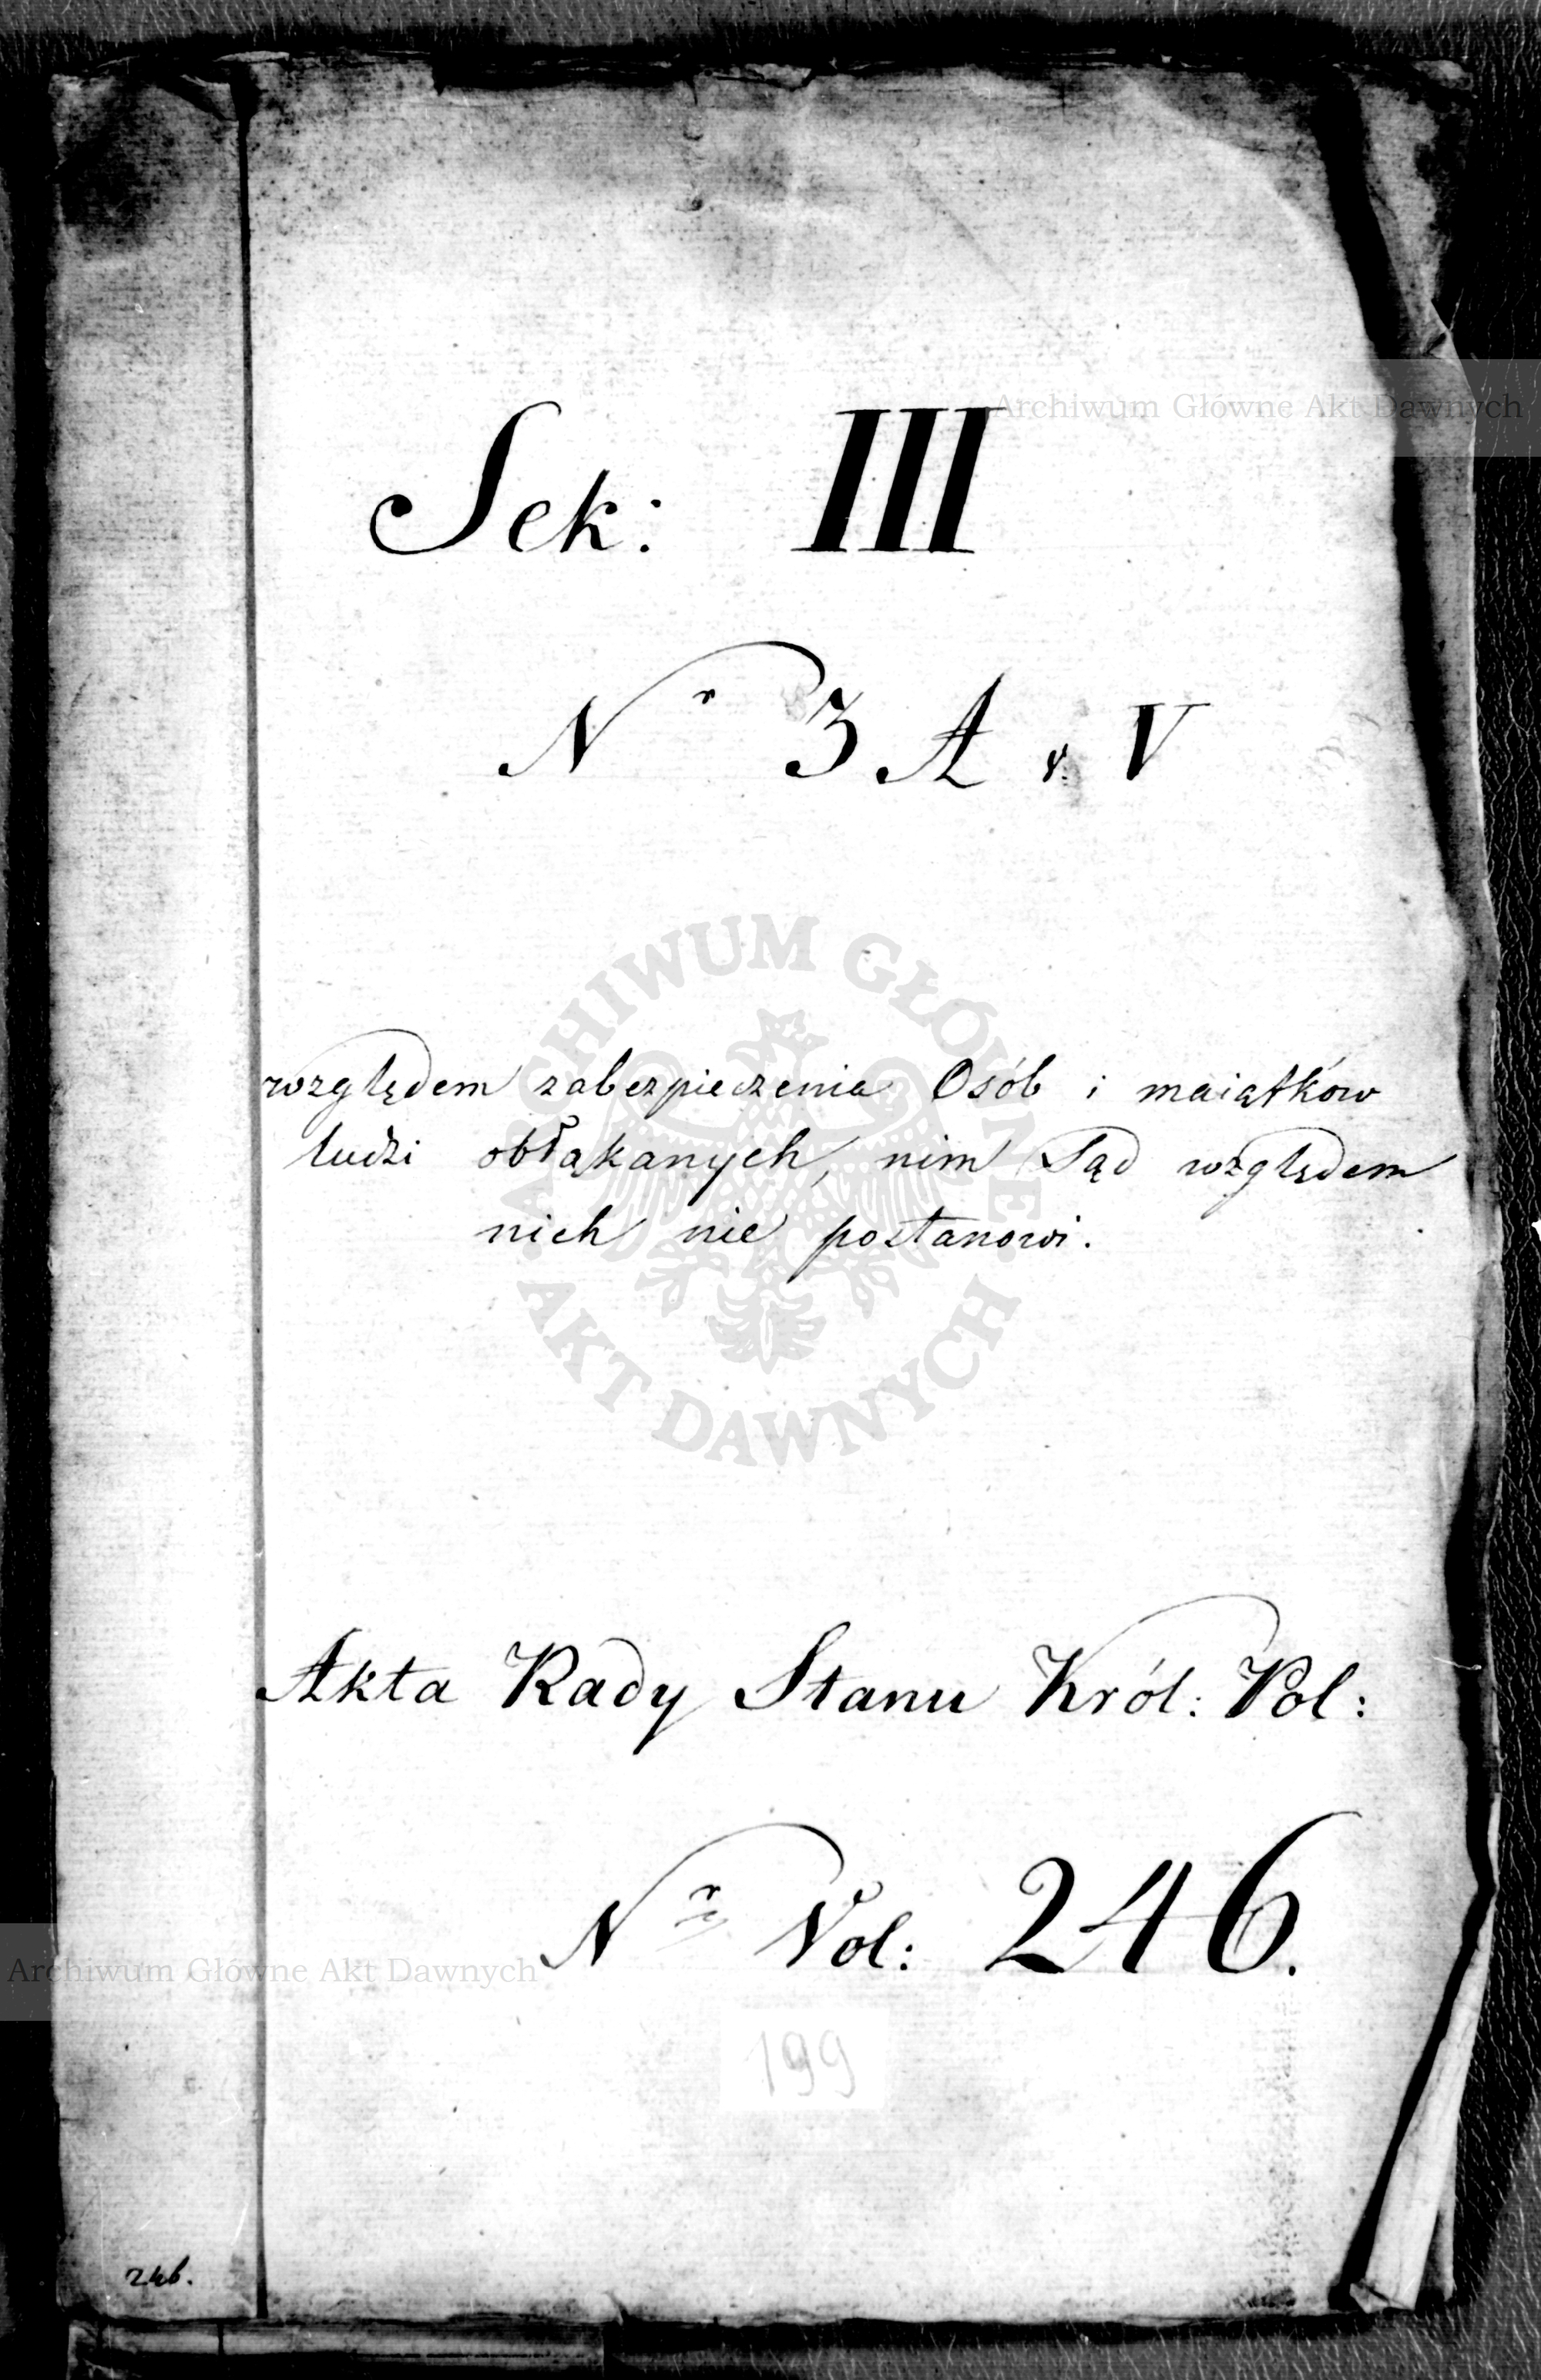 Sek: III
Nr 3 A v. V
względem zabezpieczenia Osób i maiątków
ludzi obłąkanych, nim Sąd względem
nich nie postanowi.
Akta Rady Stanu Król: Pol:
Nr Vol: 246.
199
246.
Archiwum Główne Akt Dawnych
ARCHIWUM GŁÓWNE · AKT DAWNYCH ·
Archiwum Główne Akt Dawnych